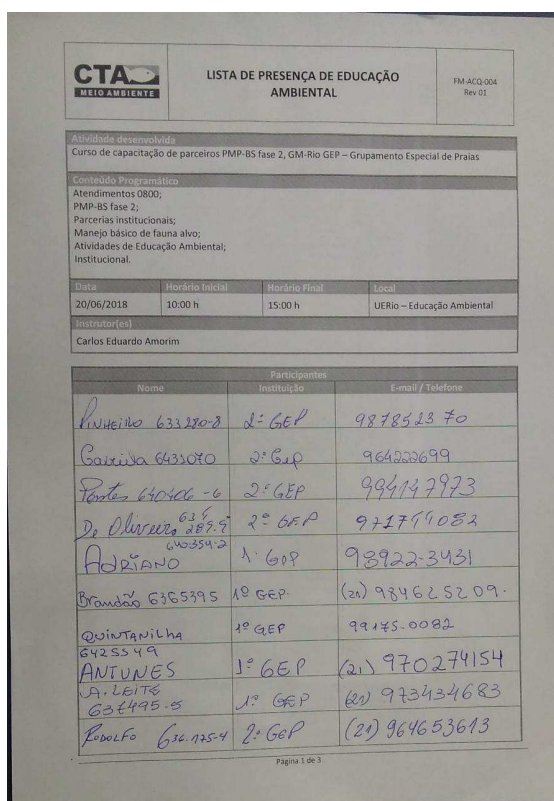 CTA
MEIO AMBIENTE
LISTA DE PRESENÇA DE EDUCAÇÃO
AMBIENTAL
FM-ACQ-004
Rev 01
Atividade desenvolvida
Curso de capacitação de parceiros PMP-BS fase 2, GM-Rio GEP – Grupamento Especial de Praias
Conteúdo Programático
Atendimentos 0800;
PMP-BS fase 2;
Parcerias institucionais;
Manejo básico de fauna alvo;
Atividades de Educação Ambiental;
Institucional.
Data Horário Inicial Horário Final Local
20/06/2018 10:00 h 15:00 h UERio – Educação Ambiental
Instrutor(es)
Carlos Eduardo Amorim
Participantes
Nome Instituição E-mail / Telefone
PINHEIRO 633280-8 2º GEP 9878523 70
6433070 2º Gep 964222699
Pontes 640406-6 2º GEP 994147973
De Oliveira 2º GEP
ADRIANO 640354-2 1º GEP 98922-3431
Brandão 6365395 1º GEP (21) 984625209.
QUINTANILHA 1º GEP 99175-0082
6425549
ANTUNES 1º GEP (21) 970274154
A. LEITE
637495-5 1º GEP (21) 973434683
RODOLFO 636.175-4 2º GEP (21) 964653613
Página 1 de 3